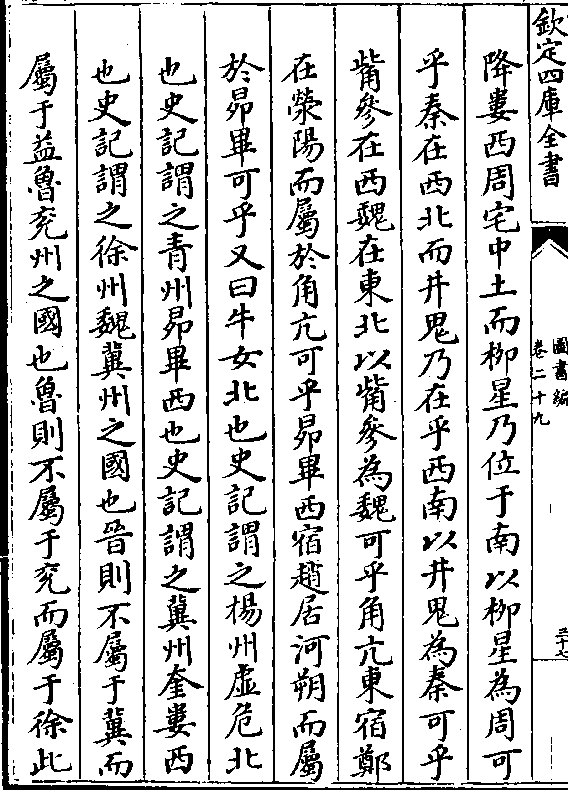 欽定四庫全書
圖書編
卷二十九
三十七
降婁西周宅中土而柳星乃位于南以柳星為周可
乎秦在西北而井鬼乃在乎西南以井鬼為秦可乎
觜參在西魏在東北以觜參為魏可乎角亢東宿鄭
在滎陽而屬於角亢可乎昴畢西宿趙居河朔而屬
於昴畢可乎又曰牛女北也史記謂之楊州虛危北
也史記謂之青州昴畢西也史記謂之冀州奎婁西
也史記謂之徐州魏冀州之國也晉則不屬于冀而
屬于益魯兖州之國也魯則不屬于兖而屬于徐此